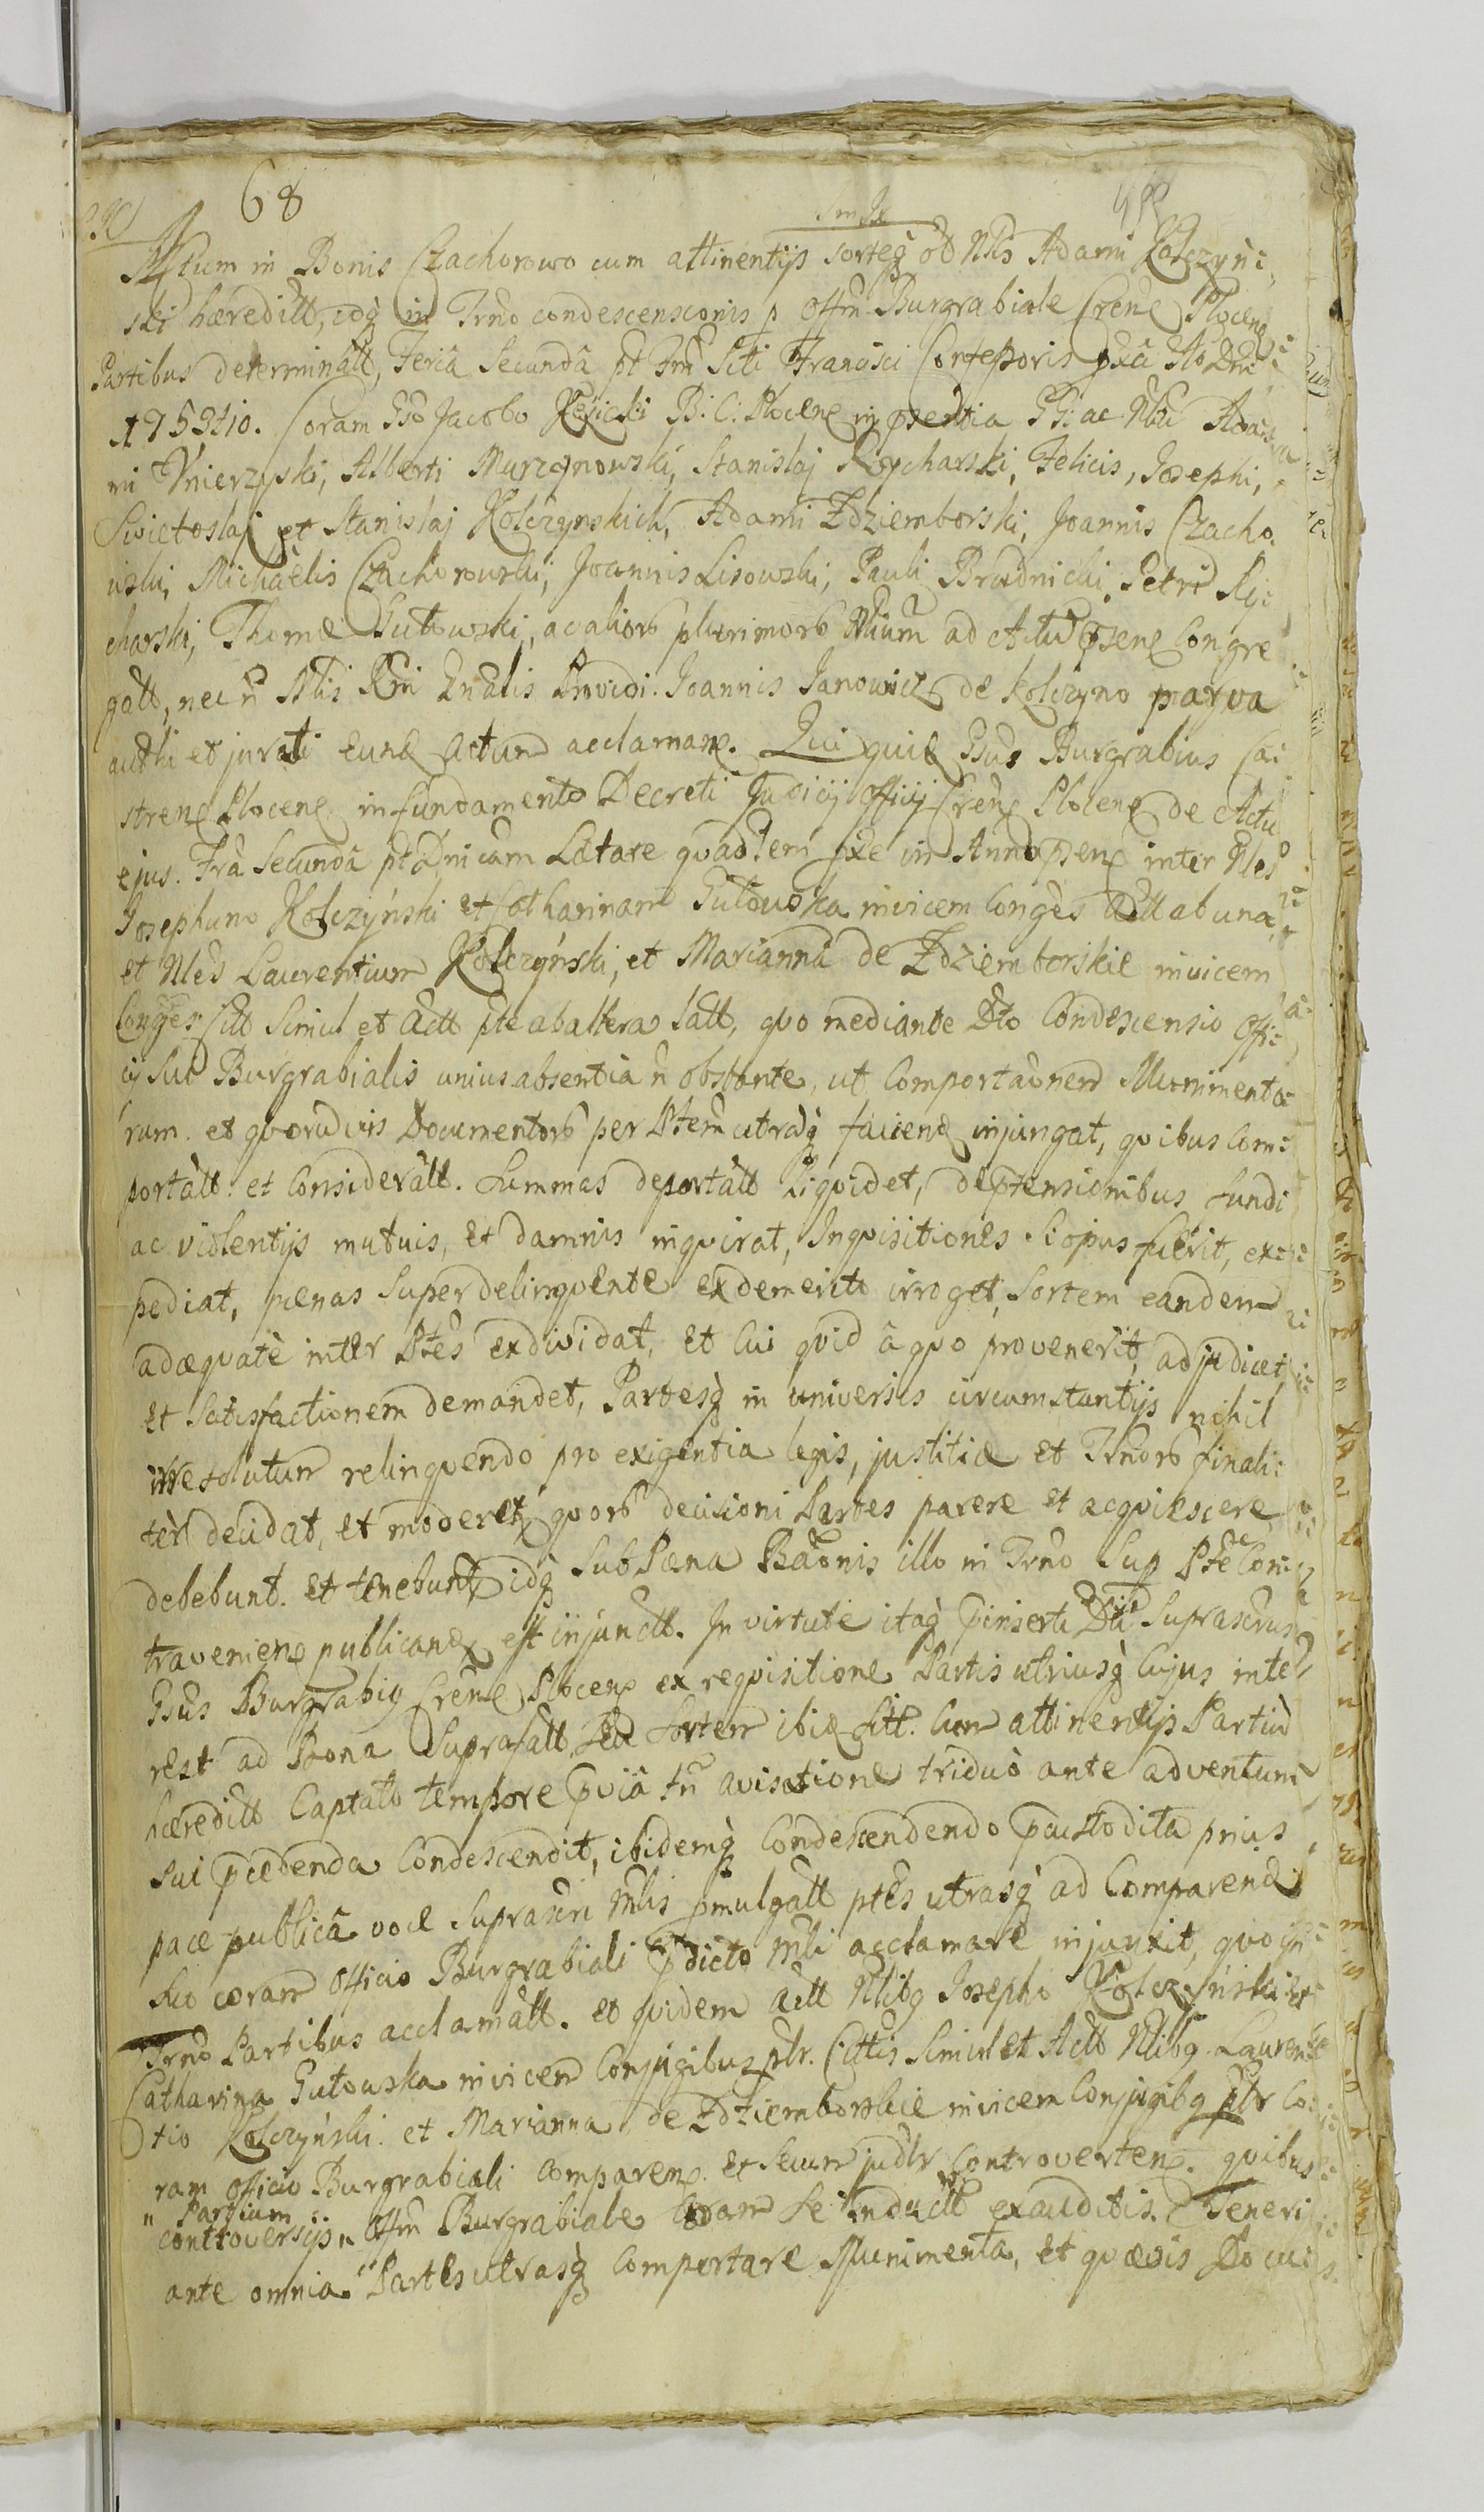 68
Actum in Bonis Czachorowo cum attinentijs sorteq̃ ob Nlis Adami Kolczyń:
ski hæreditt, idq̀ in Trñno condescensionis p Offm̃ Burgrabiale Crene Plocen
Partibus determinatt, Feria Secundâ pt Fm̃ Scti Francisci Confessoris pxa Ao Dni
1753tio. Coram Gso Jacobo Kęsicki B: C: Plocen in psentia GG: ac Nbu Ada:
mi Vnierzyski, Alberti Murzynowski, Stanislai Rycharski, Felicis, Josephi,
Swietoslaj et Stanislaj Kolczynskich, Adami Zdziemborski, Joannis Czacho
wski, Michaèlis Czachorowski, Joannis Lisowski, Pauli Brudnicki, Petri Ry:
charski, Thomæ Gutowski, ac aliorb plurimorb Nlium ad Actũ psene Congre
gatt, nec ñ Mlis Rni Gnalis Providi Joannis Janowicz de Kolczyno parva
authi et jurati eund actum acclaman. Qui quid Gsus Burgrabius Ca:
stren Plocen in fundamento Decreti Judicij Officij Cren Plocen de Actu
ejus. Fra Secundâ pt Dnicam Lætare quad'lem pxe in Anno psen inter Nles
Josephum Kolczyński et Catharinam Gutowska invicem Conges Actt ab una,
et Nles Laurentium Kolczyński, et Mariannã de Zdziemborskie invicem
Conges Citt Simul et Actt pte ab altera latt, quo mediante Dto Condescensio Offi:
cij Sui Burgrabialis unius absentiâ ñ obstante, ut Comportaõnem Munimento
rum et quoruduis Documentorb per Ptem utrãq faciend injungat, quibus Com:
portatt: et Consideratt. Summas deportatt Liquidet, de ptensionibus fundi
ac violentijs mutuis, et damnis inquirat, Inquisitiones Si opus fuerit, ex:
pediat, pænas Super delinquente ex demerito irroget, Sortem eandem
adæquatè inter Ptes exdividat, et Cui quid â quo provenerit, adjudicet
et Satisfactionem demandet, Partesq̀ in universis circumstantijs nihil
irresolutum relinquendo pro exigentia legis, justitiæ et Trnorb finali:
ter decidat, et moderet, quorb decisioni Partes parere et acquiescere
debebunt et tenebunt idq Sub Pæna Baõnis illo in Trno Sup Pte Con:
travenien publicand est injunctt. In virtute itaq pinserti Dti Suprascrus
Gsus Burgrabig Crene Plocen ex requisitione Partis utriusq̀ Cujus inte
rest ad Bona Suprafatt, Seu Sortem ibid sitt. Cum attinentijs Partiũ
hæreditt Captato tempore pviâ tñ avisatione triduò ante adventum
sui pcedenda Condescendit, ibidemq̀ Condescendendo pcustodita prius
pace publicâ voce Suprascri Mlis pmulgatt ptes utrasq̀ ad Comparend
suo coram Officio Burgrabiali pdicto Mli acclamare injunxit, quo in
Trno Partibus acclamatt. et quidem Actt Nlibg Josepho Kolczyński et
Catharina Gutowska invicem Conjugibus plr. Cittis Simul et Actt Nlibg Lauren
tio Kolczyński et Marianna de Zdziemborskie invicem Conjugibg plr Co:
ram Officio Burgrabiali Comparen. et Secum judlr Controverten. quibus
" Partium
controversijs „ Offm̃ Burgrabiale Coram Se inductt exauditis. Teneri
ante omnia Partes utrasq̀ Comportare Munimenta, et quævis Docu